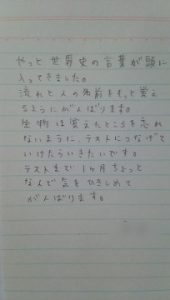 やっと世界史の言葉が頭に
入ってきました。
流れと人の名前をもっと覚え
るようにがんばります。
生物は覚えたところを忘れ
ないように、テストにつなげて
いけたらいきたいです。
テストまで1ヶ月ちょっと
なんで気をひきしめて
がんばります。